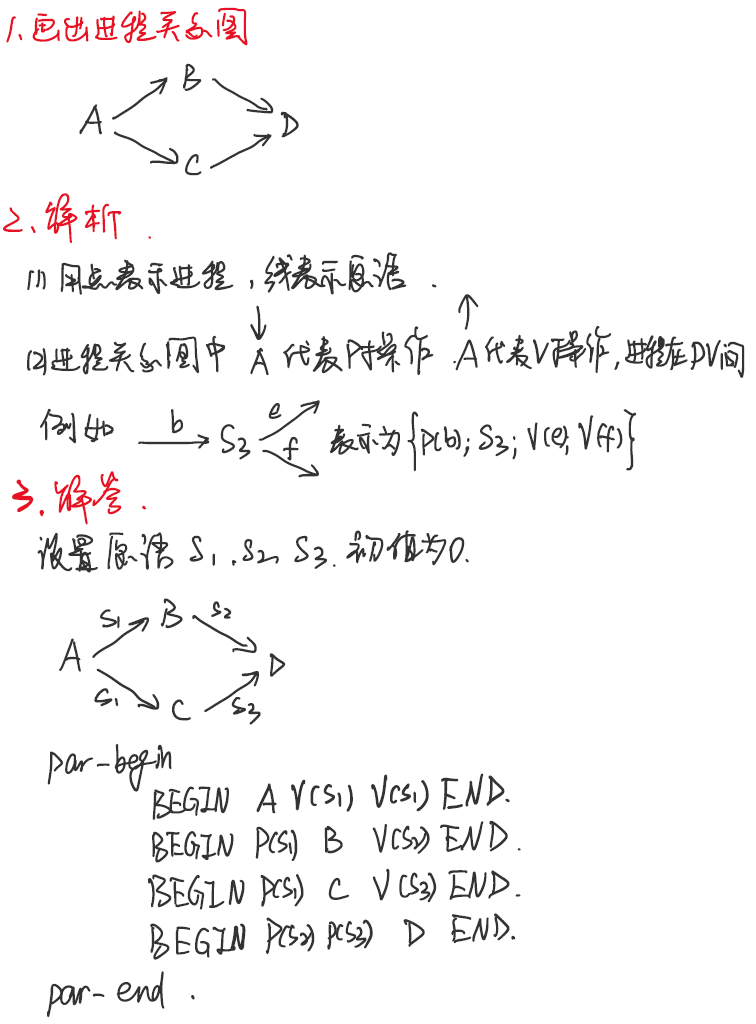 1、画出进程关系图
B
A D
C
2、解析.
(1) 用点表示进程,线表示原语.
(2)进程关系图中 A 代表P操作.A代表V操作,进程在PV间
例如 b S3 e f 表示为{P(b); S3; V(e); V(f)}
3、解答.
设置原语 S1.S2 S3.初值为0.
S1 B S2
A D
S1 C S3
par-begin
BEGIN A V(S1) V(S1) END.
BEGIN P(S1) B V(S2) END.
BEGIN P(S1) C V(S3) END.
BEGIN P(S2) P(S3) D END.
par-end.